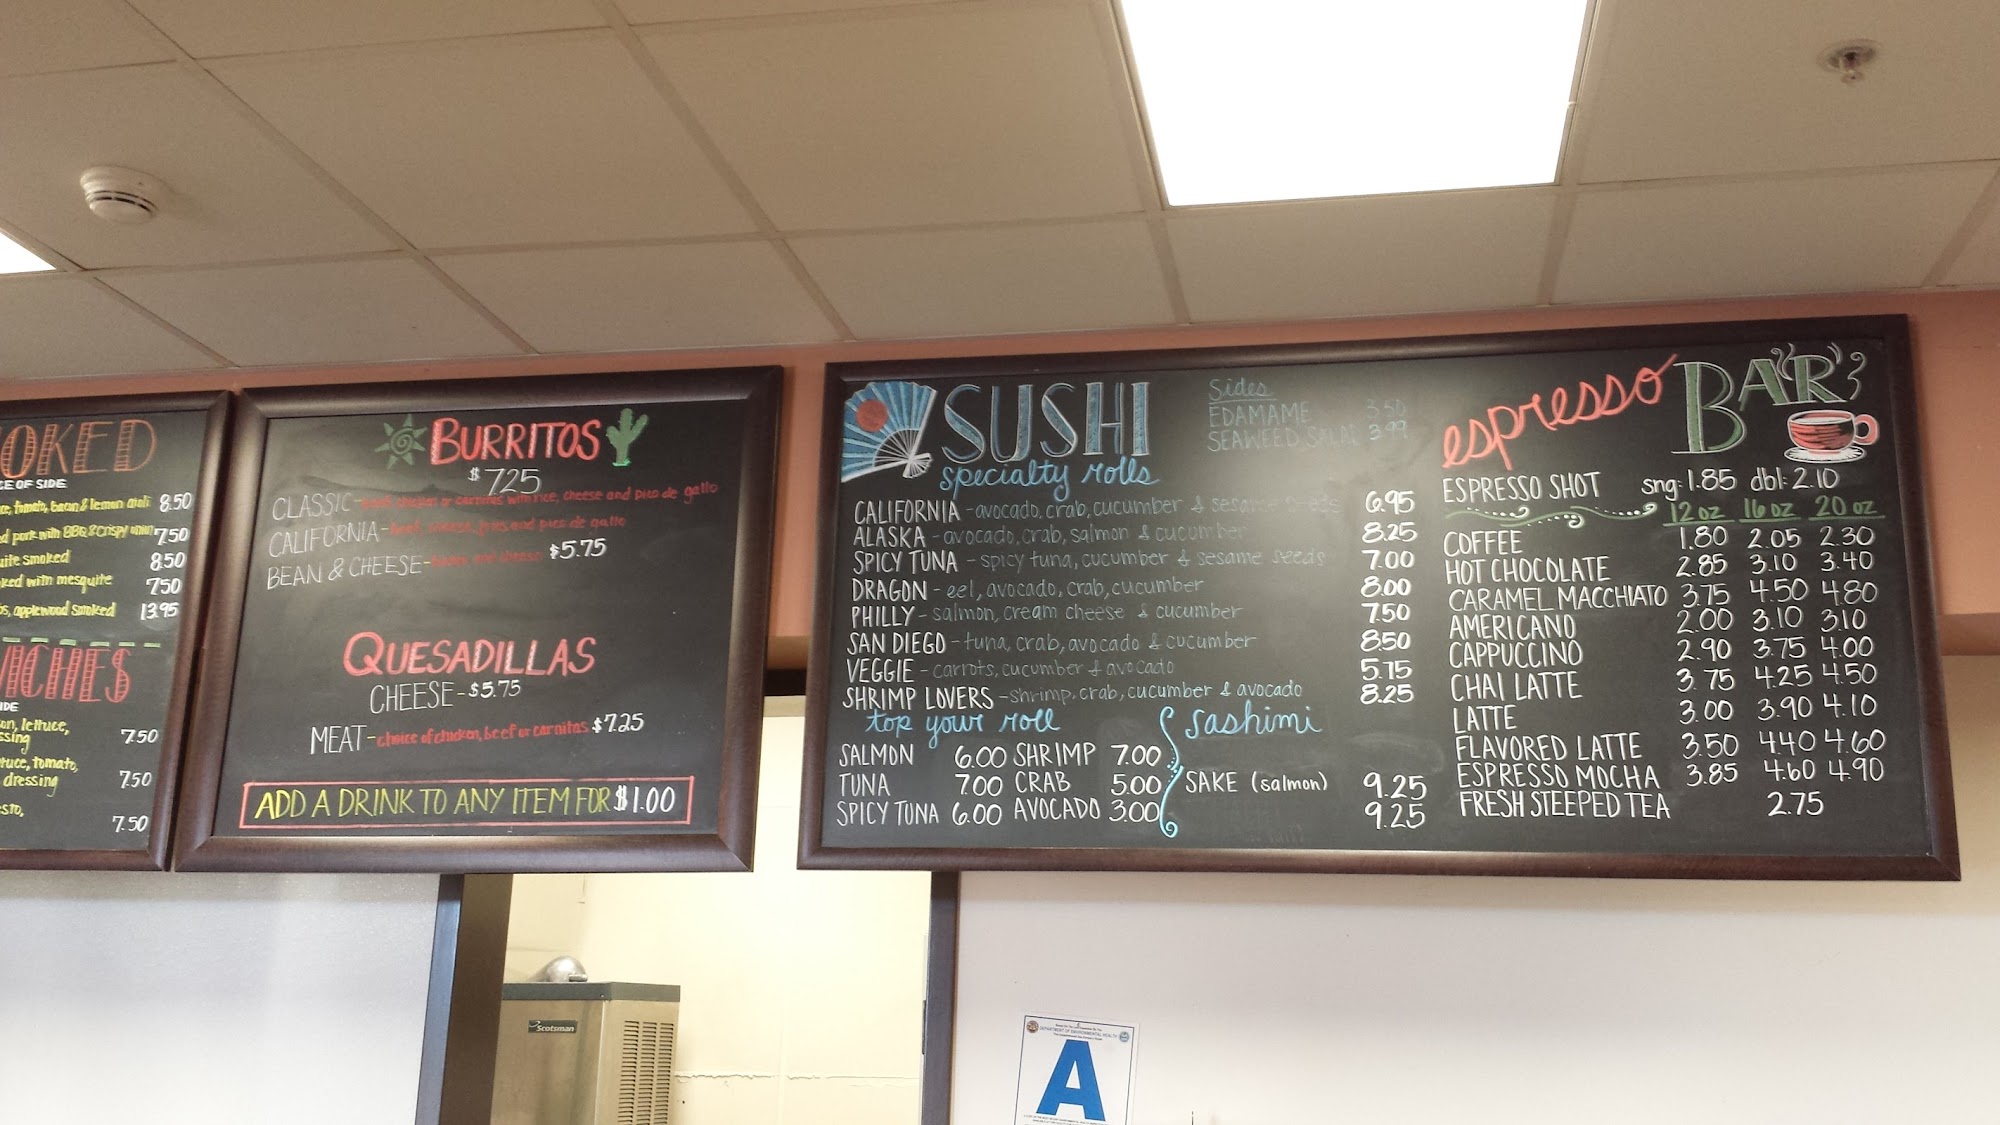 OKED
CE OF SIDE
ce, tomato, bacon & lemon aioli 8.50
d pork with BBQ & crispy onion 7.50
uite smoked 8.50
ked with mesquite 7.50
s, applewood smoked 13.95
ICHES
IDE
on, lettuce,
ssing 7.50
tuce, tomato,
dressing 7.50
esto,
7.50
BURRITOS
$7.25
CLASSIC- beef, chicken or carnitas with rice, cheese and pico de gallo
CALIFORNIA- beef, cheese, fries and pico de gallo
BEAN & CHEESE- beans and cheese $5.75
QUESADILLAS
CHEESE- $5.75
MEAT- choice of chicken, beef or carnitas $7.25
ADD A DRINK TO ANY ITEM FOR $1.00
SUSHI
specialty rolls
CALIFORNIA - avocado, crab, cucumber & sesame seeds 6.95
ALASKA - avocado, crab, salmon & cucumber 8.25
SPICY TUNA - spicy tuna, cucumber & sesame seeds 7.00
DRAGON - eel, avocado, crab, cucumber 8.00
PHILLY - salmon, cream cheese & cucumber 7.50
SAN DIEGO - tuna, crab, avocado & cucumber 8.50
VEGGIE - carrots, cucumber & avocado 5.75
SHRIMP LOVERS - shrimp, crab, cucumber & avocado 8.25
Sides
EDAMAME 3.50
SEAWEED SALAD 3.99
top your roll
SALMON 6.00 SHRIMP 7.00
TUNA 7.00 CRAB 5.00
SPICY TUNA 6.00 AVOCADO 3.00
sashimi
SAKE (salmon) 9.25
9.25
espresso BAR
ESPRESSO SHOT sng: 1.85 dbl: 2.10
12 oz 16 oz 20 oz
COFFEE 1.80 2.05 2.30
HOT CHOCOLATE 2.85 3.10 3.40
CARAMEL MACCHIATO 3.75 4.50 4.80
AMERICANO 2.00 3.10 3.10
CAPPUCCINO 2.90 3.75 4.00
CHAI LATTE 3.75 4.25 4.50
LATTE 3.00 3.90 4.10
FLAVORED LATTE 3.50 4.40 4.60
ESPRESSO MOCHA 3.85 4.60 4.90
FRESH STEEPED TEA 2.75
Scotsman
DEPARTMENT OF ENVIRONMENTAL HEALTH
A